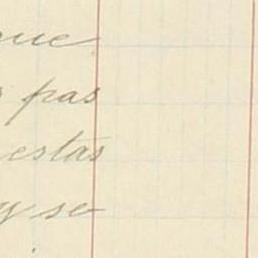 que
pas
estas
y se